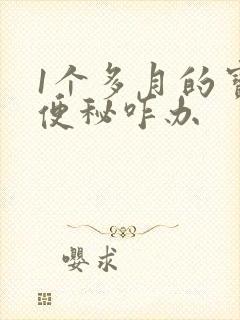 1个多月的
便秘咋办
嘤求